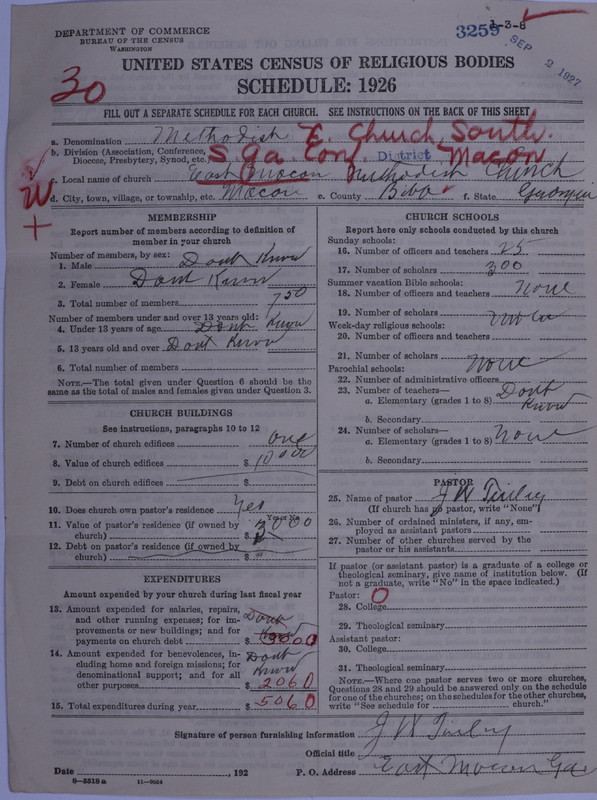 DEPARTMENT OF COMMERCE
BUREAU OF THE CENSUS
WASHINGTON
1-3-8
3259
SEP 2 1927
UNITED STATES CENSUS OF RELIGIOUS BODIES
SCHEDULE: 1926
30
FILL OUT A SEPARATE SCHEDULE FOR EACH CHURCH. SEE INSTRUCTIONS ON THE BACK OF THIS SHEET
a. Denomination Methodish E. Church, South.
b. Division (Association, Conference, Diocese, Presbytery, Synod, etc.) S. Ga. Con. District Macon
c. Local name of church East Macon Methodish Church
d. City, town, village, or township, etc. Macon e. County Bibb f. State Georgia
W
+
MEMBERSHIP
Report number of members according to definition of
member in your church
Number of members, by sex:
1. Male Dont Know
2. Female Dont Know
3. Total number of members 750
Number of members under and over 13 years old:
4. Under 13 years of age Dont Know
5. 13 years old and over Dont Know
6. Total number of members
NOTE.—The total given under Question 6 should be the
same as the total of males and females given under Question 3.
CHURCH BUILDINGS
See instructions, paragraphs 10 to 12
7. Number of church edifices one
8. Value of church edifices $ 10000
9. Debt on church edifices $
10. Does church own pastor's residence Yes
11. Value of pastor's residence (if owned by
church) $ 3000
12. Debt on pastor's residence (if owned by
church) $
EXPENDITURES
Amount expended by your church during last fiscal year
13. Amount expended for salaries, repairs,
and other running expenses; for im-
provements or new buildings; and for
payments on church debt $ Dont 3000
14. Amount expended for benevolences, in-
cluding home and foreign missions; for
denominational support; and for all
other purposes $ Dont Know 2060
15. Total expenditures during year $ 5060
CHURCH SCHOOLS
Report here only schools conducted by this church
Sunday schools:
16. Number of officers and teachers 25
17. Number of scholars 300
Summer vacation Bible schools:
18. Number of officers and teachers None
19. Number of scholars
Week-day religious schools:
20. Number of officers and teachers
21. Number of scholars None
Parochial schools:
22. Number of administrative officers
23. Number of teachers—
a. Elementary (grades 1 to 8) Dont Know
b. Secondary
24. Number of scholars—
a. Elementary (grades 1 to 8) None
b. Secondary
PASTOR
25. Name of pastor J W Tinley
(If church has no pastor, write "None")
26. Number of ordained ministers, if any, em-
ployed as assistant pastors
27. Number of other churches served by the
pastor or his assistants
If pastor (or assistant pastor) is a graduate of a college or
theological seminary, give name of institution below. (If
not a graduate, write "No" in the space indicated.)
Pastor: 0
28. College
29. Theological seminary
Assistant pastor:
30. College
31. Theological seminary
NOTE.—Where one pastor serves two or more churches,
Questions 28 and 29 should be answered only on the schedule
for one of the churches; on the schedules for the other churches,
write "See schedule for church."
Signature of person furnishing information J W Tinley
Official title
Date , 192 P. O. Address East Macon Ga
8-5518a 11-9034